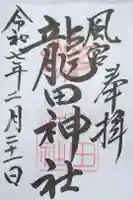 奉拝
風宮
龍田神社
令和七年二月二十一日